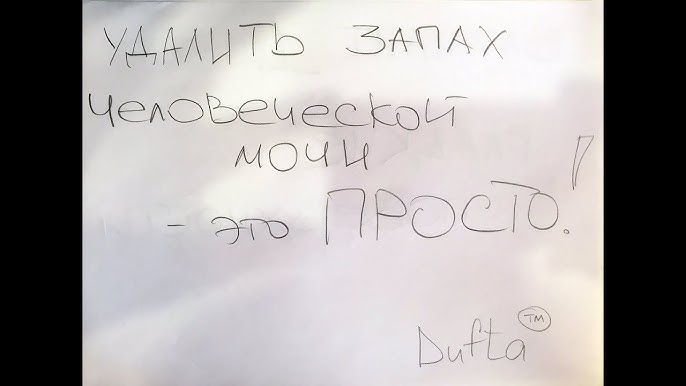 УДАЛИТЬ ЗАПАХ
ЧЕЛОВЕЧЕСКОЙ
МОЧИ
- ЭТО ПРОСТО!
Dufta TM